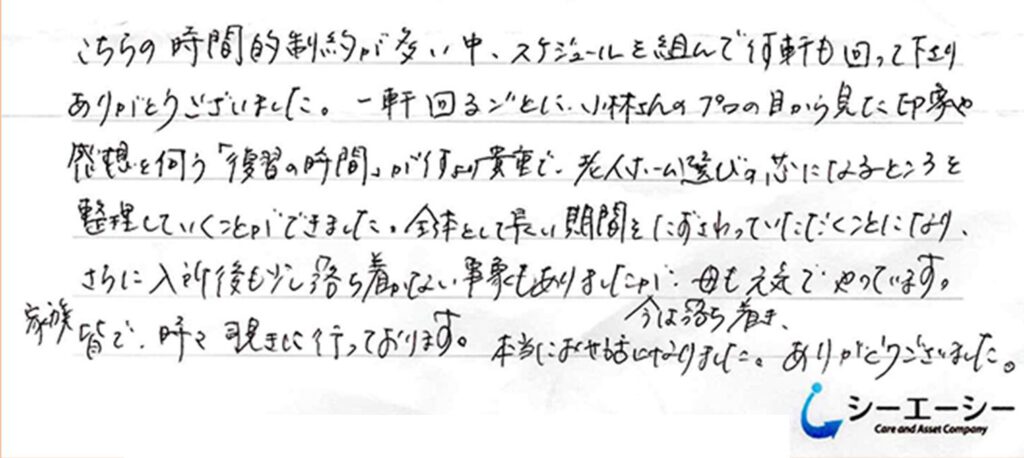 こちらの時間的制約が多い中、スケジュールを組んで何軒も回って下さり
ありがとうございました。一軒回るごとに、小林さんのプロの目から見た印象や
感想を伺う「復習の時間」が何より貴重で、老人ホーム選びの芯になるところを
整理していくことができました。全体として長い期間をたずさわっていただくことになり、
さらに入所後も少し落ち着かない事象もありましたが、母も元気でやっています。
今は落ち着き、
家族皆で、時々覗きに行っております。本当にお世話になりました。ありがとうございました。
シーエーシー
Care and Asset Company